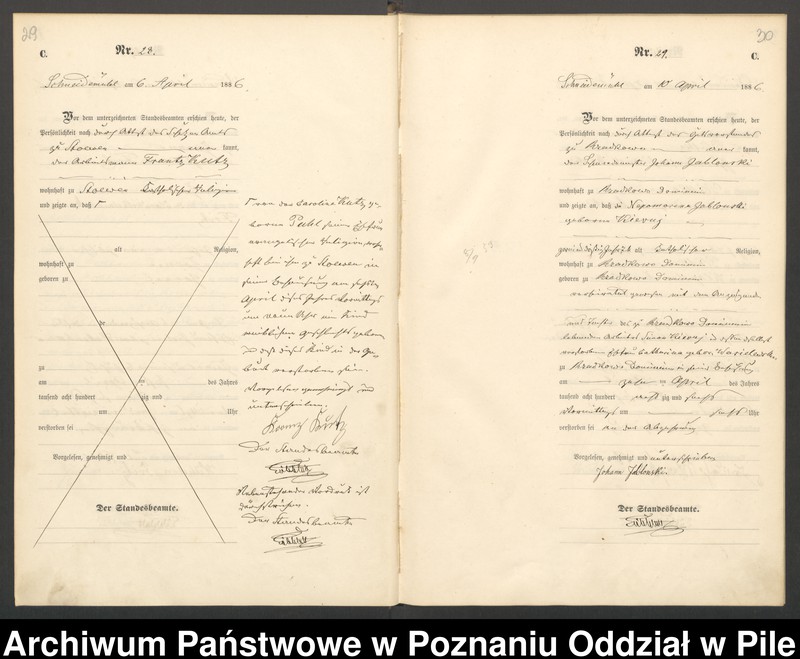 29
C.
Nr. 28.
Schneidemühl am 6 April 1886.
Vor dem unterzeichneten Standesbeamten erschien heute, der
Persönlichkeit nach durch Attest des
zu Stoewen kannt,
der Arbeitsmann Frantz Kutz
wohnhaft zu Stoewen katholischer Religion
und zeigte an, daß
alt Religion,
wohnhaft zu
geboren zu
de
zu
am des Jahres
tausend acht hundert zig und
um Uhr
verstorben sei
Vorgelesen, genehmigt und
Der Standesbeamte.
von der Caroline Kutz ge-
borene Puhl seiner Ehefrau
evangelischer Religion, wohn-
haft bei ihm zu Stoewen in
seiner Behausung am sechsten
April dieses Jahres Vormittags
um neun Uhr ein Kind
weiblichen Geschlechts geboren
und daß dieses Kind in der Ge-
burt verstorben sei.
Vorgelesen genehmigt und
unterschrieben.
Franz Kutz
Der Standesbeamte
Nebenstehender Vordruck ist
durchstrichen.
Der Standesbeamte
30
C.
Nr. 29.
Schneidemühl am 10 April 1886.
Vor dem unterzeichneten Standesbeamten erschien heute, der
Persönlichkeit nach durch Attest des Gutsvorstandes
zu Kradkowo kannt,
der Johann Jablonski
wohnhaft zu Kradkowo Dominium
und zeigte an, daß die Nepomucena Jablonski
geborene
alt katholischer Religion,
wohnhaft zu Kradkowo Dominium
geboren zu Kradkowo Dominium
verheiratet gewesen mit dem Anzeigenden
Tochter des zu Kradkowo Dominium
verstorbenen Ehefrau Catharina geborene
zu Kradkowo Dominium in seiner Behausung
am zehn ten April des Jahres
tausend acht hundert acht zig und sechs
Vormittags um sechs Uhr
verstorben sei an der Abzehrung
Vorgelesen, genehmigt und unterschrieben
Johann Jablonski.
Der Standesbeamte.
Archiwum Państwowe w Poznaniu Oddział w Pile